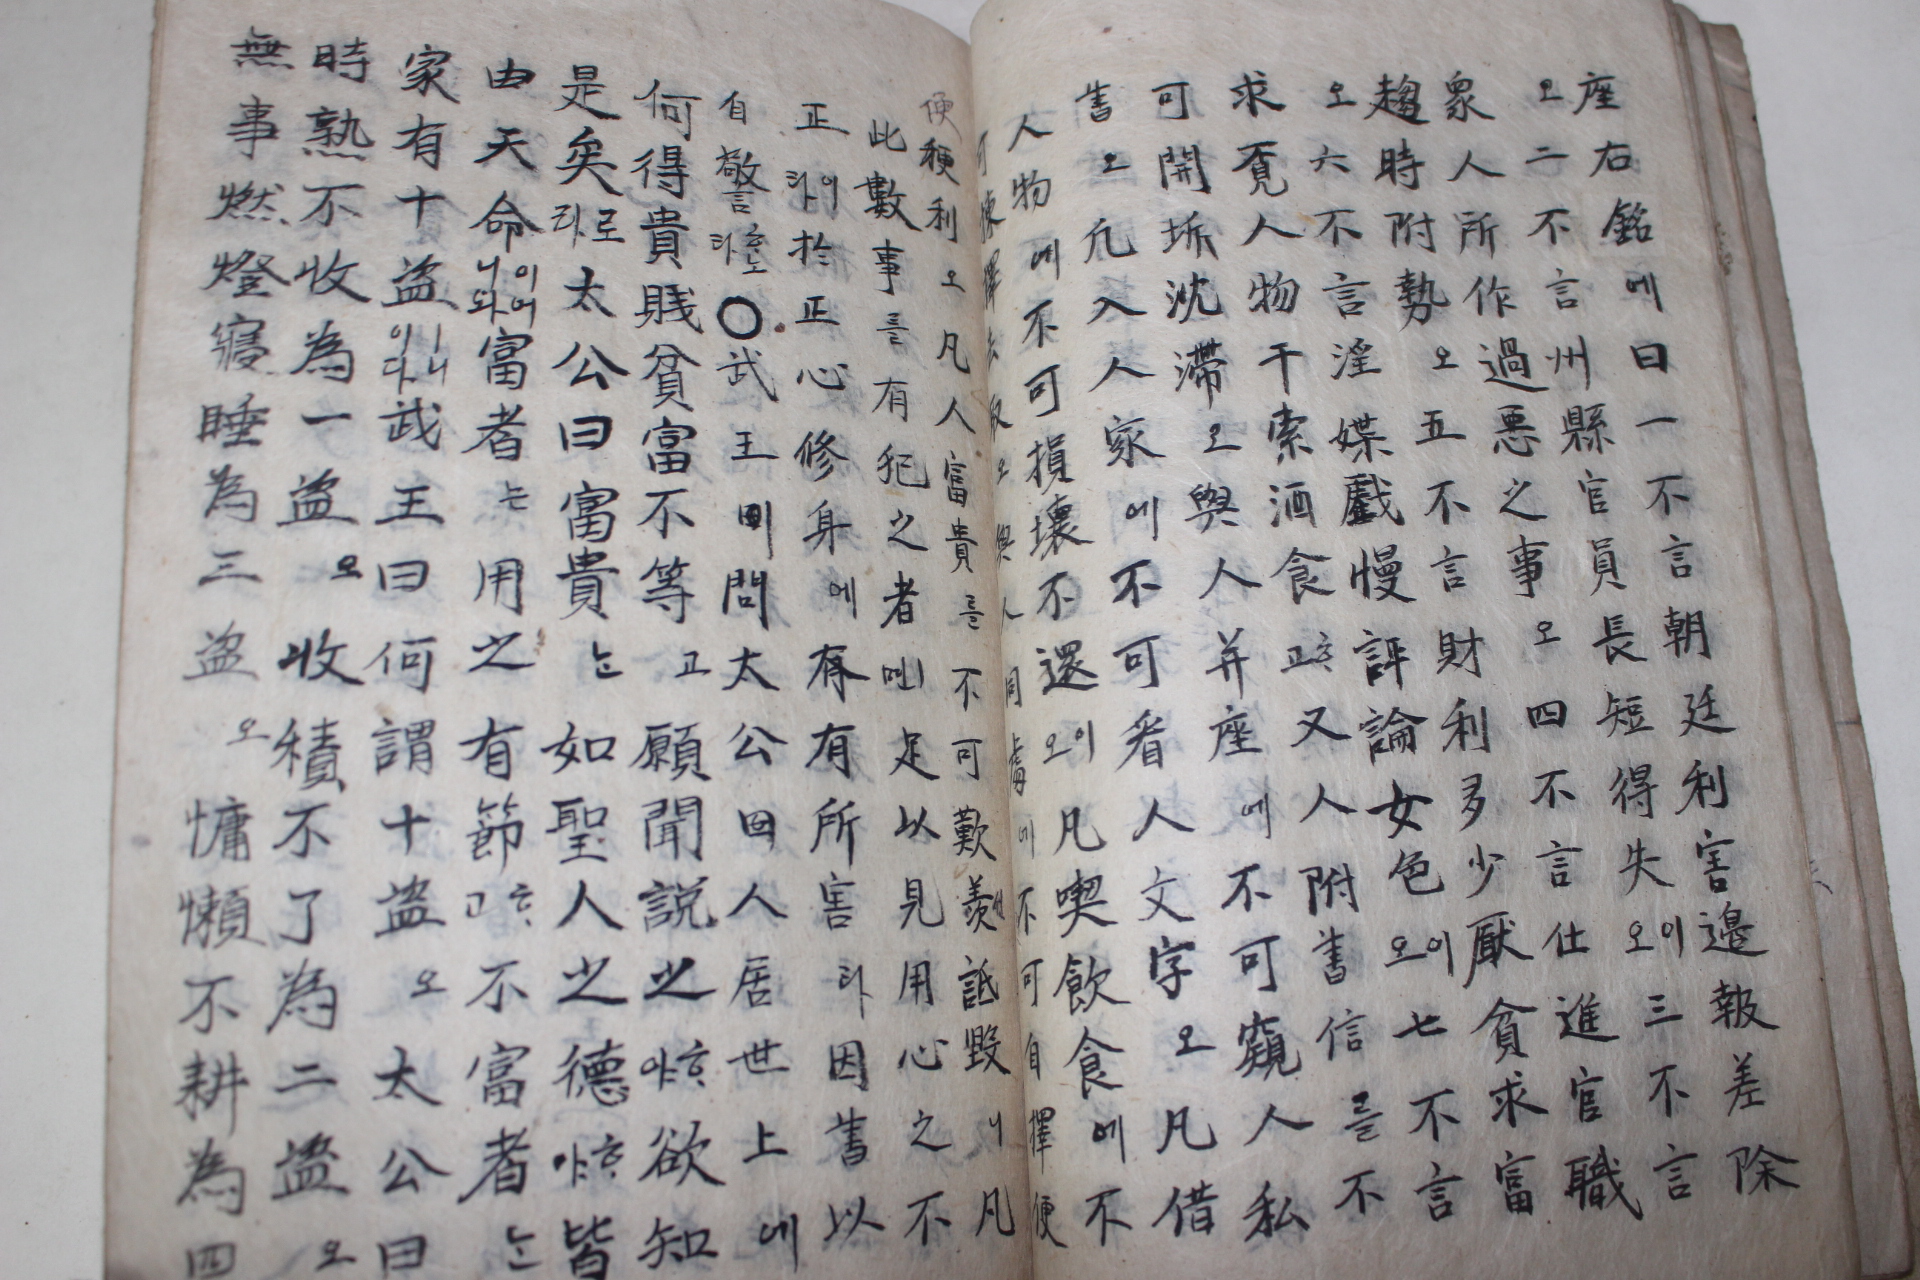 座右銘에曰一不言朝廷利害邊報差除
오二不言州縣官員長短得失이오三不言
衆人所作過惡之事오四不言仕進官職
趨時附勢오五不言財利多少厭貧求富
오六不言淫媒戲慢評論女色이오七不言
求覓人物干索酒食고又人附書信를不
可開坼沈滯오與人幷座에不可窺人私
書오凡入人家에不可看人文字오凡借
人物에不可損壞不還이오凡喫飮食에不
可揀擇去取오與人同處에不可自擇便
便利오凡人富貴를不可歎羨詆毀니凡
此數事를有犯之者면足以見用心之不
正이라於正心修身에有所害라因書以
自警노라○武王이問太公曰人居世上에
何得貴賤貧富不等고願聞說之야欲知
是矣로라太公曰富貴는如聖人之德야皆
由天命이어니와富者는用之有節고不富者는
家有十盜니이다武王曰何謂十盜오太公曰
時熟不收爲一盜오收積不了爲二盜오
無事燃燈寢睡爲三盜오慵懶不耕爲四